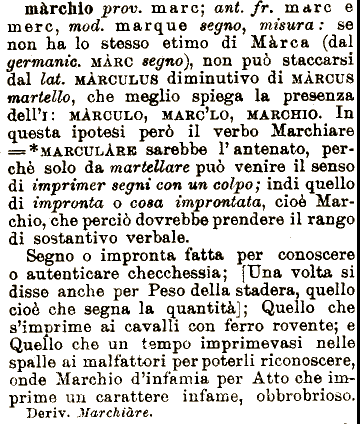 màrchio prov. marc; ant. fr. marc e
merc, mod. marque segno, misura: se
non ha lo stesso etimo di Màrca (dal
germanic. MÀRC segno), non può staccarsi
dal lat. MÀRCULUS diminutivo di MÀRCUS
martello, che meglio spiega la presenza
dell'I: MÀRCULO, MARC'LO, MARCHIO. In
questa ipotesi però il verbo Marchiare
=*MARCULÀRE sarebbe l'antenato, per-
chè solo da martellare può venire il senso
di imprimer segni con un colpo; indi quello
di impronta o cosa improntata, cioè Mar-
chio, che perciò dovrebbe prendere il rango
di sostantivo verbale.
Segno o impronta fatta per conoscere
o autenticare checchessia; [Una volta si
disse anche per Peso della stadera, quello
cioè che segna la quantità]; Quello che
s'imprime ai cavalli con ferro rovente; e
Quello che un tempo imprimevasi nelle
spalle ai malfattori per poterli riconoscere,
onde Marchio d'infamia per Atto che im-
prime un carattere infame, obbrobrioso.
Deriv. Marchiàre.